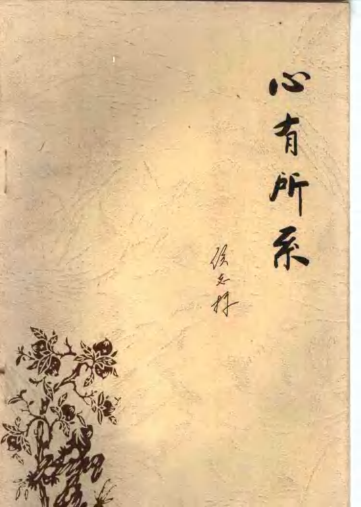 心有所系